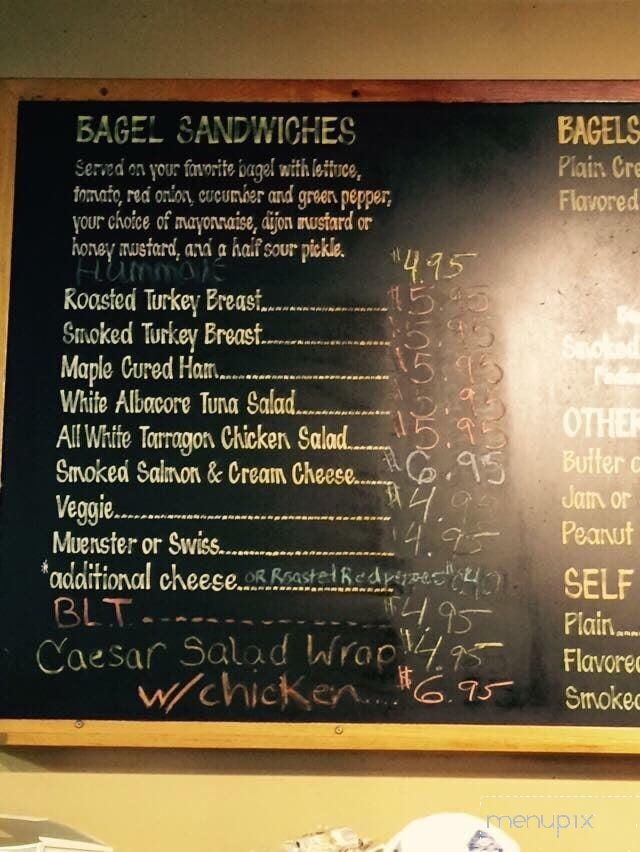 BAGEL SANDWICHES
Served on your favorite bagel with lettuce,
tomato, red onion, cucumber and green pepper,
your choice of mayonnaise, dijon mustard or
honey mustard, and a half sour pickle.
$4.95
Roasted Turkey Breast........ $5.95
Smoked Turkey Breast........ $5.95
Maple Cured Ham........ $5.95
White Albacore Tuna Salad........ $5.95
All White Tarragon Chicken Salad..... $5.95
Smoked Salmon & Cream Cheese..... $6.95
Veggie........ $4.95
Muenster or Swiss........ $4.95
*additional cheese OR Roasted Red
BLT------------ $4.95
Caesar Salad Wrap $4.95
w/chicken.... $6.95
BAGELS
Plain Cre
Flavored
Smoked
OTHER
Butter o
Jam or
Peanut
SELF
Plain....
Flavored
Smoked
menupix